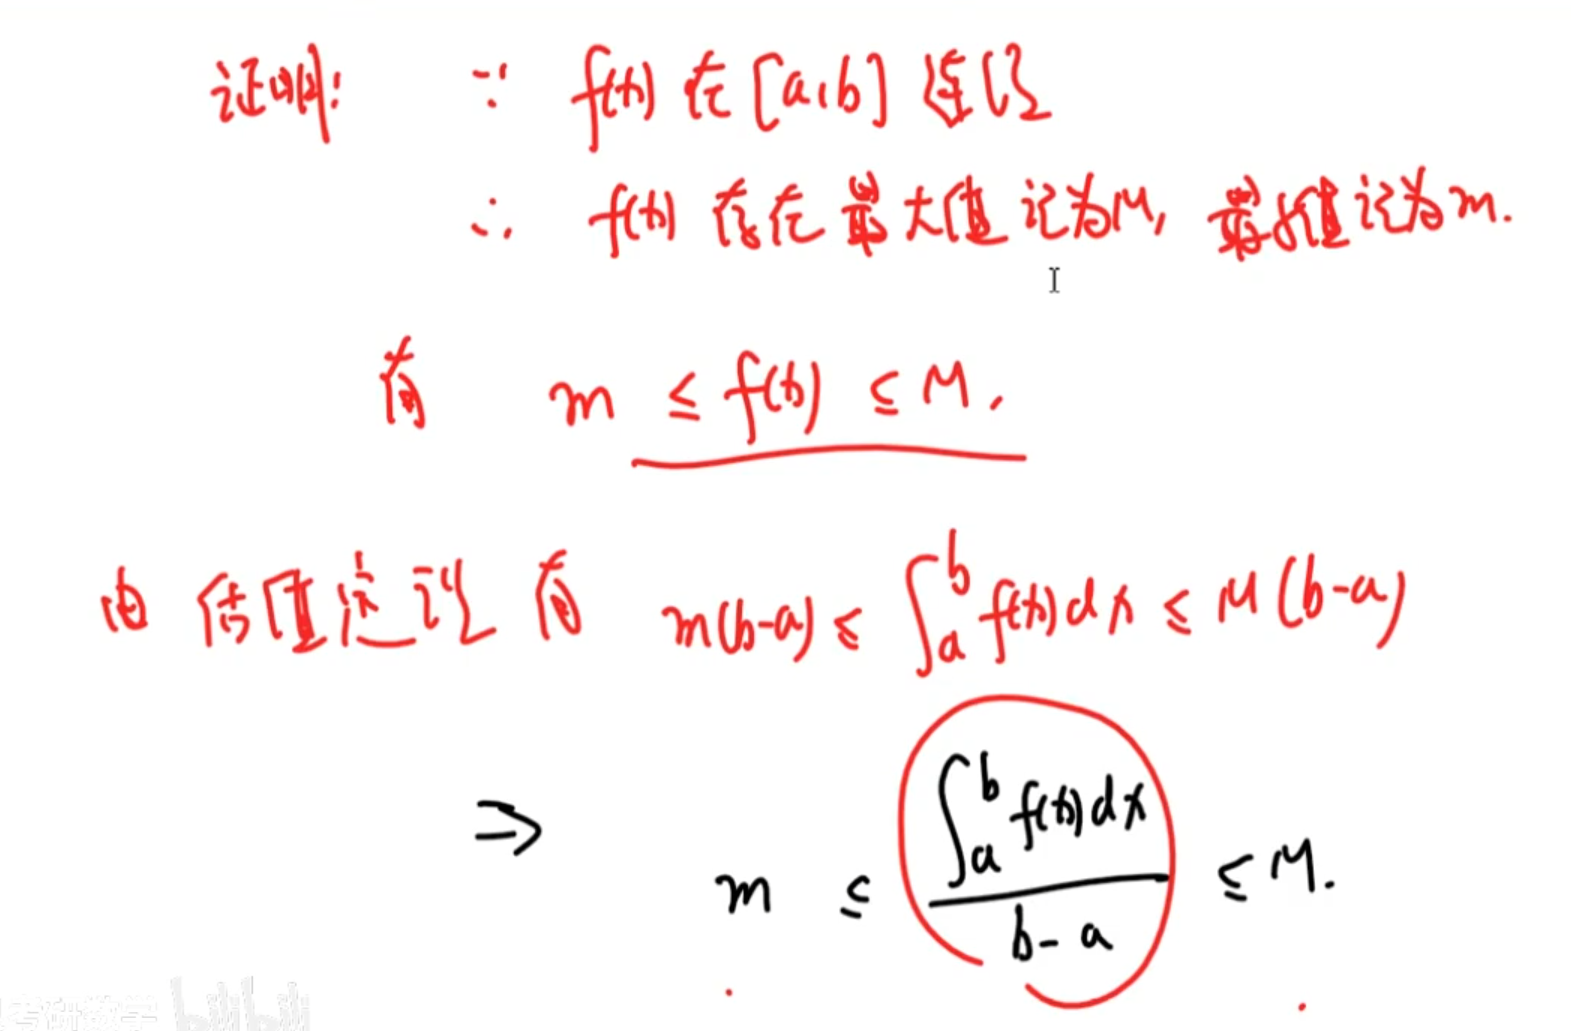 证明: ∵ f(x) 在 [a,b] 连续
∴ f(x) 存在最大值记为M, 最小值记为m.
有 m ≤ f(x) ≤ M.
由估值定理有 m(b-a) ≤ ∫_a^b f(x)dx ≤ M(b-a)
⇒ m ≤ \frac{∫_a^b f(x)dx}{b-a} ≤ M.
考研数学 bilibili